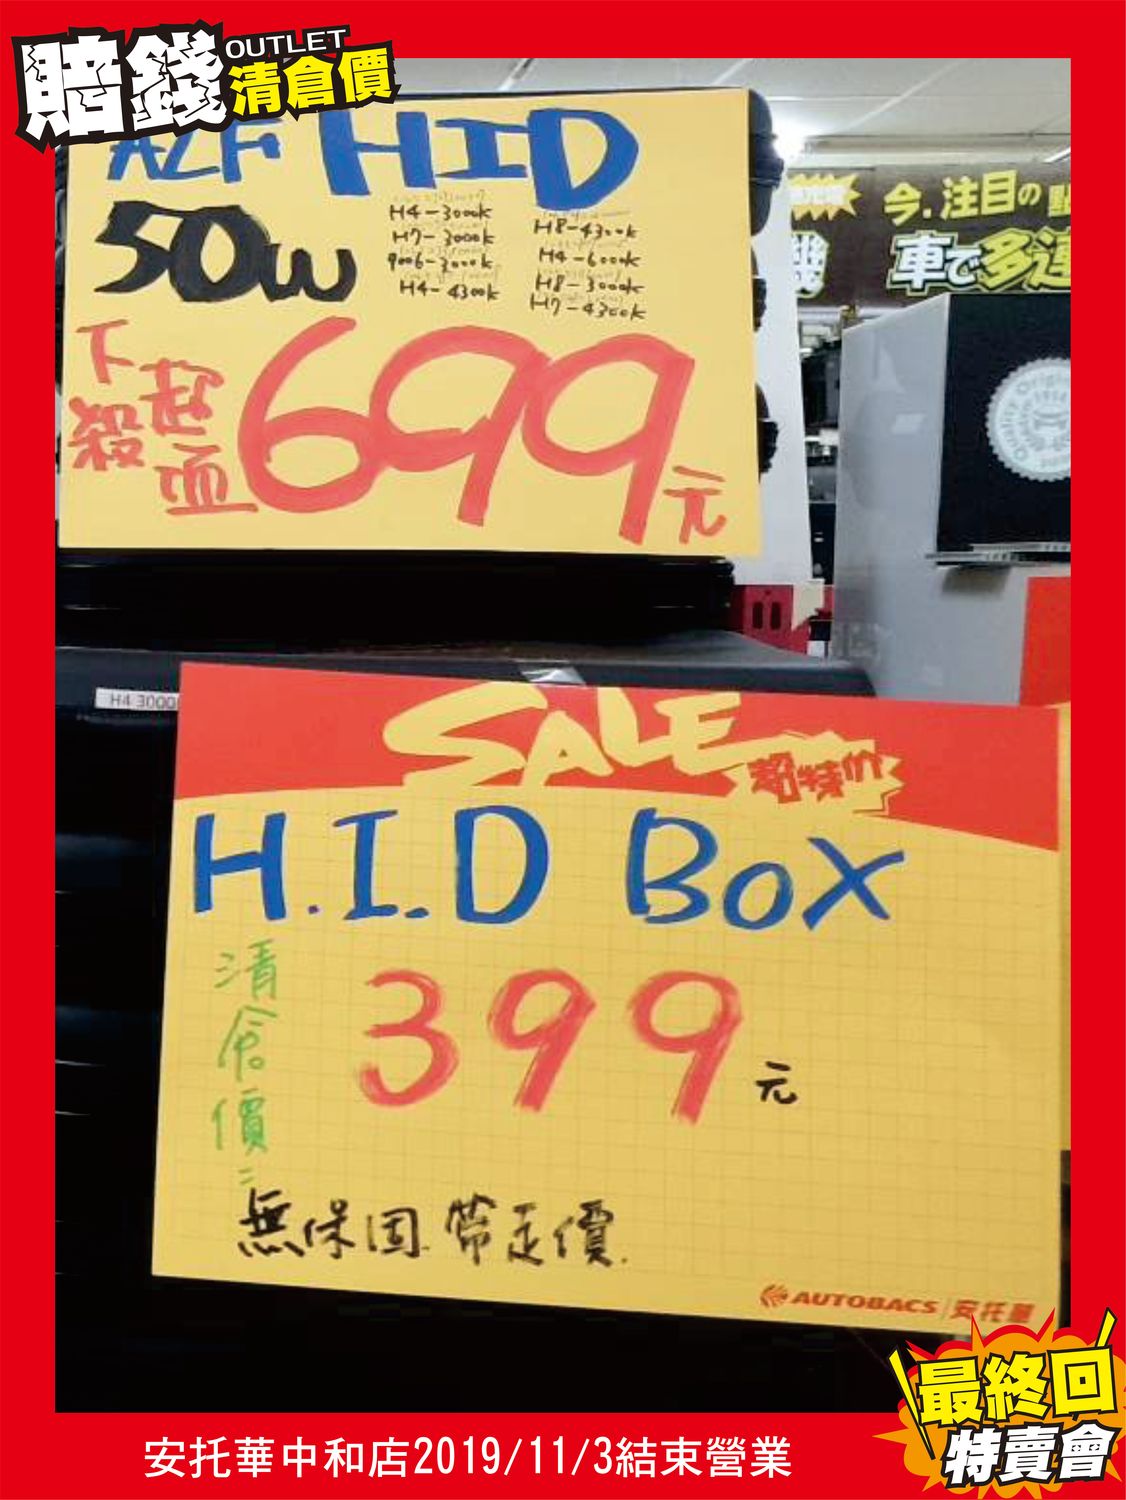 賠錢 OUTLET 清倉價
HID
50W
H4-3000k
H7-3000k
9006-3000k
H4-4300k
H8-4300k
H4-6000k
H8-3000k
H7-4300k
下殺
699元
今.注目の
車で多
Quality Original
H4 3000
SALE
超特價
H.I.D BOX
清倉價
399元
無保固.帶走價.
AUTOBACS 安托華
最終回
特賣會
安托華中和店2019/11/3結束營業